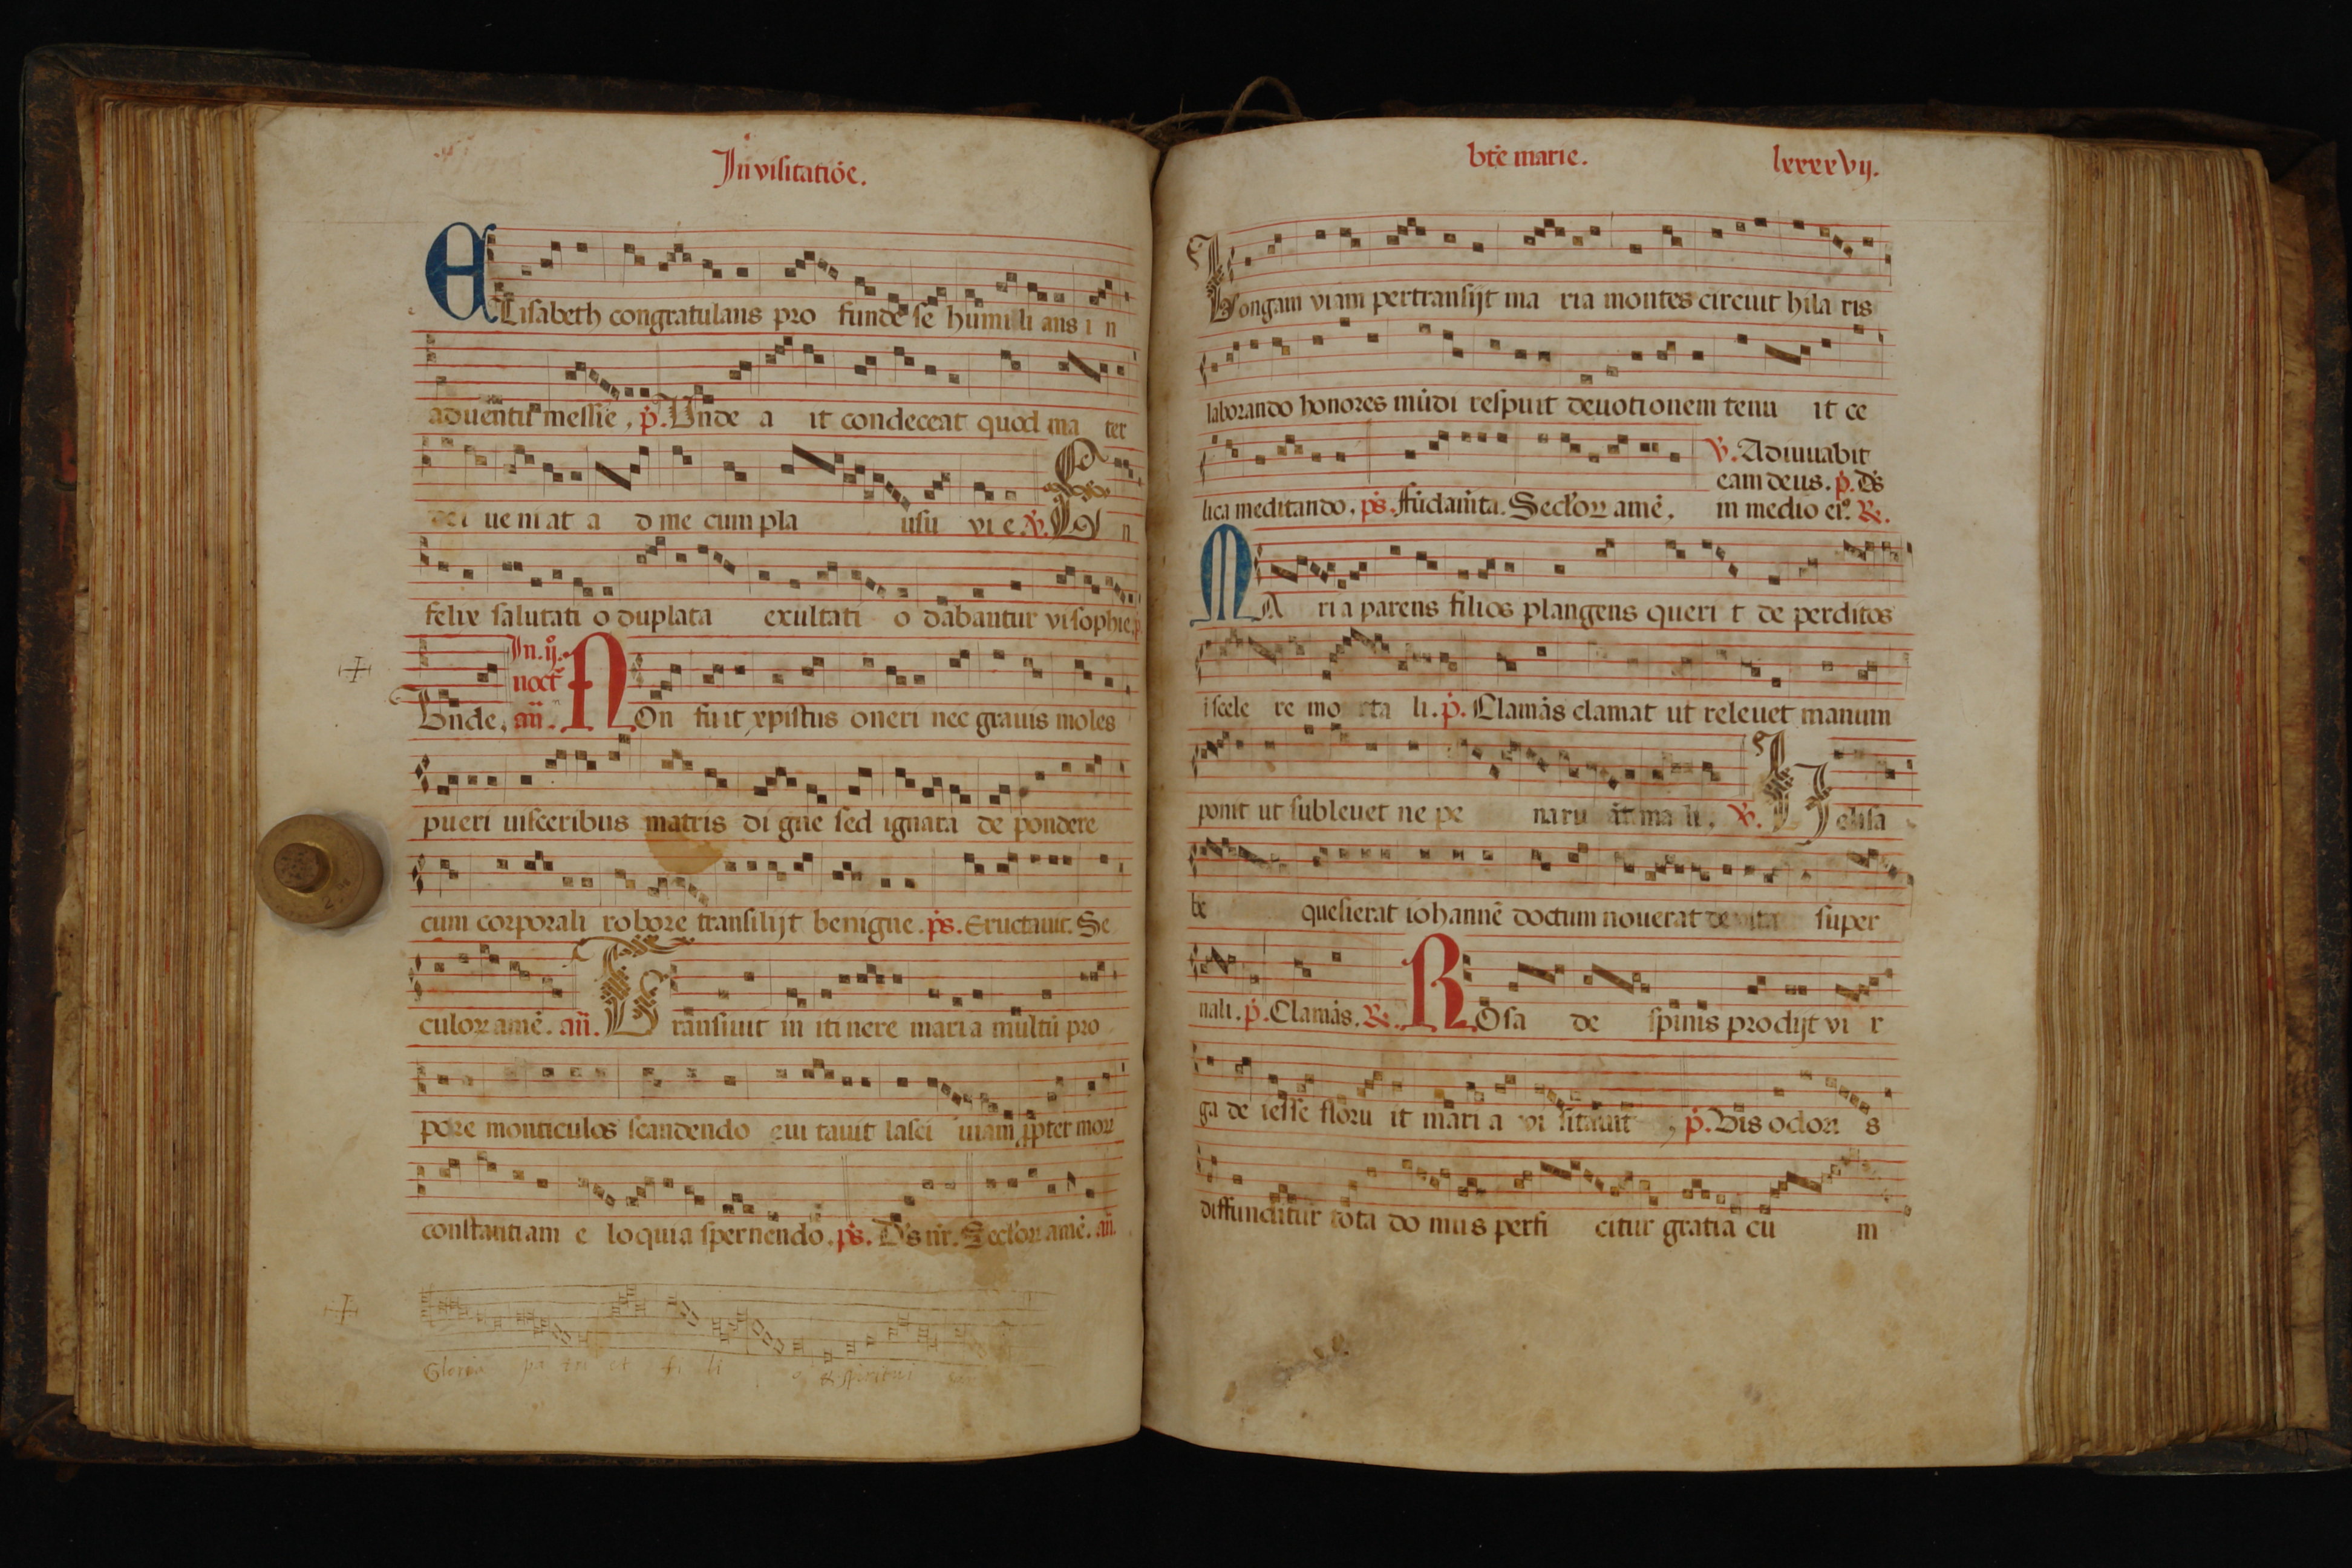 In visitatiōe.
ELisabeth congratulans pro funde se humili ans i n
aduentu messie, p̄. Unde a it condeceat quod ma ter
dei ueniat a d me cum pla usu vi e. v̄. E n
felix salutati o duplata exultati o dabantur vi sophie, p̄
Unde, añ.
In. ij.
noct̄
NOn fuit xpistus oneri nec grauis moles
pueri uisceribus matris di gne sed ignara de pondere
cum corporali robore transilijt benigne. ps̄. Eructauit. Se
culoꝝ amē. añ. Transiuit in itinere maria multū pro
pere monticulos scandendo eui tauit lasci uiam ꝓpter moꝝ
constantiam e loquia spernendo. ps̄. Ds̄ nr̄. Secl'oꝝ amē. añ.
Gloria pa tri et fi li o & spiritui
bt̄e marie.
lxxxxvij.
Longam viam pertransijt ma ria montes circuit hila ris
laborando honores mūdi respuit deuotionem tenu it ce
lica meditando, ps̄. Fūdam̄ta. Secl'oꝝ amē,
v̄. Adiuuabit
eam deus. p̄. Ds̄
in medio ei9. ꝶ.
MA ri a parens filios plangens queri t de perditos
i scele re mo rta li. p̄. Clamās clamat ut releuet manum
ponit ut subleuet ne pe naru āt ma li, v̄. H elisa
be quesierat iohannē doctum nouerat de vita super
nali. p̄. Clamās. ꝶ. ROsa de spinis prodijt vi r
ga de iesse floru it mari a vi sitauit, p̄. Bis odoꝝ s
diffunditur tota do mus perfi citur gratia cu m